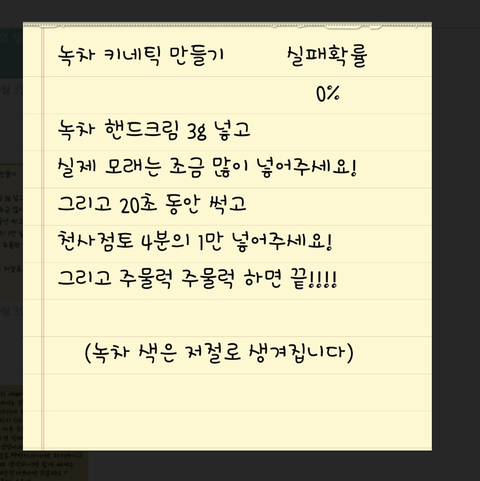 녹차 키네틱 만들기 실패확률
0%
녹차 핸드크림 3g 넣고
실제 모래는 조금 많이 넣어주세요!
그리고 20초 동안 썩고
천사점토 4분의 1만 넣어주세요!
그리고 주물럭 주물럭 하면 끝!!!!
(녹차 색은 저절로 생겨집니다)